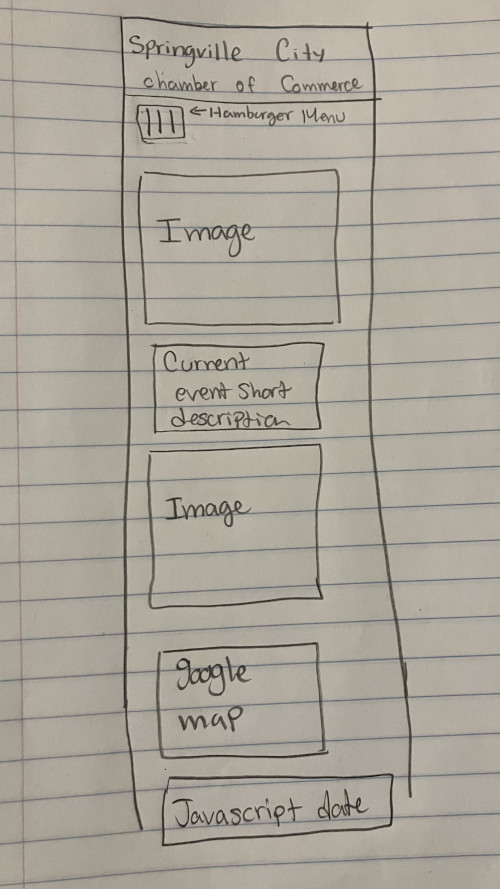 Springville City
chamber of Commerce
←Hamburger Menu
Image
Current
event short
description
Image
google
map
Javascript date